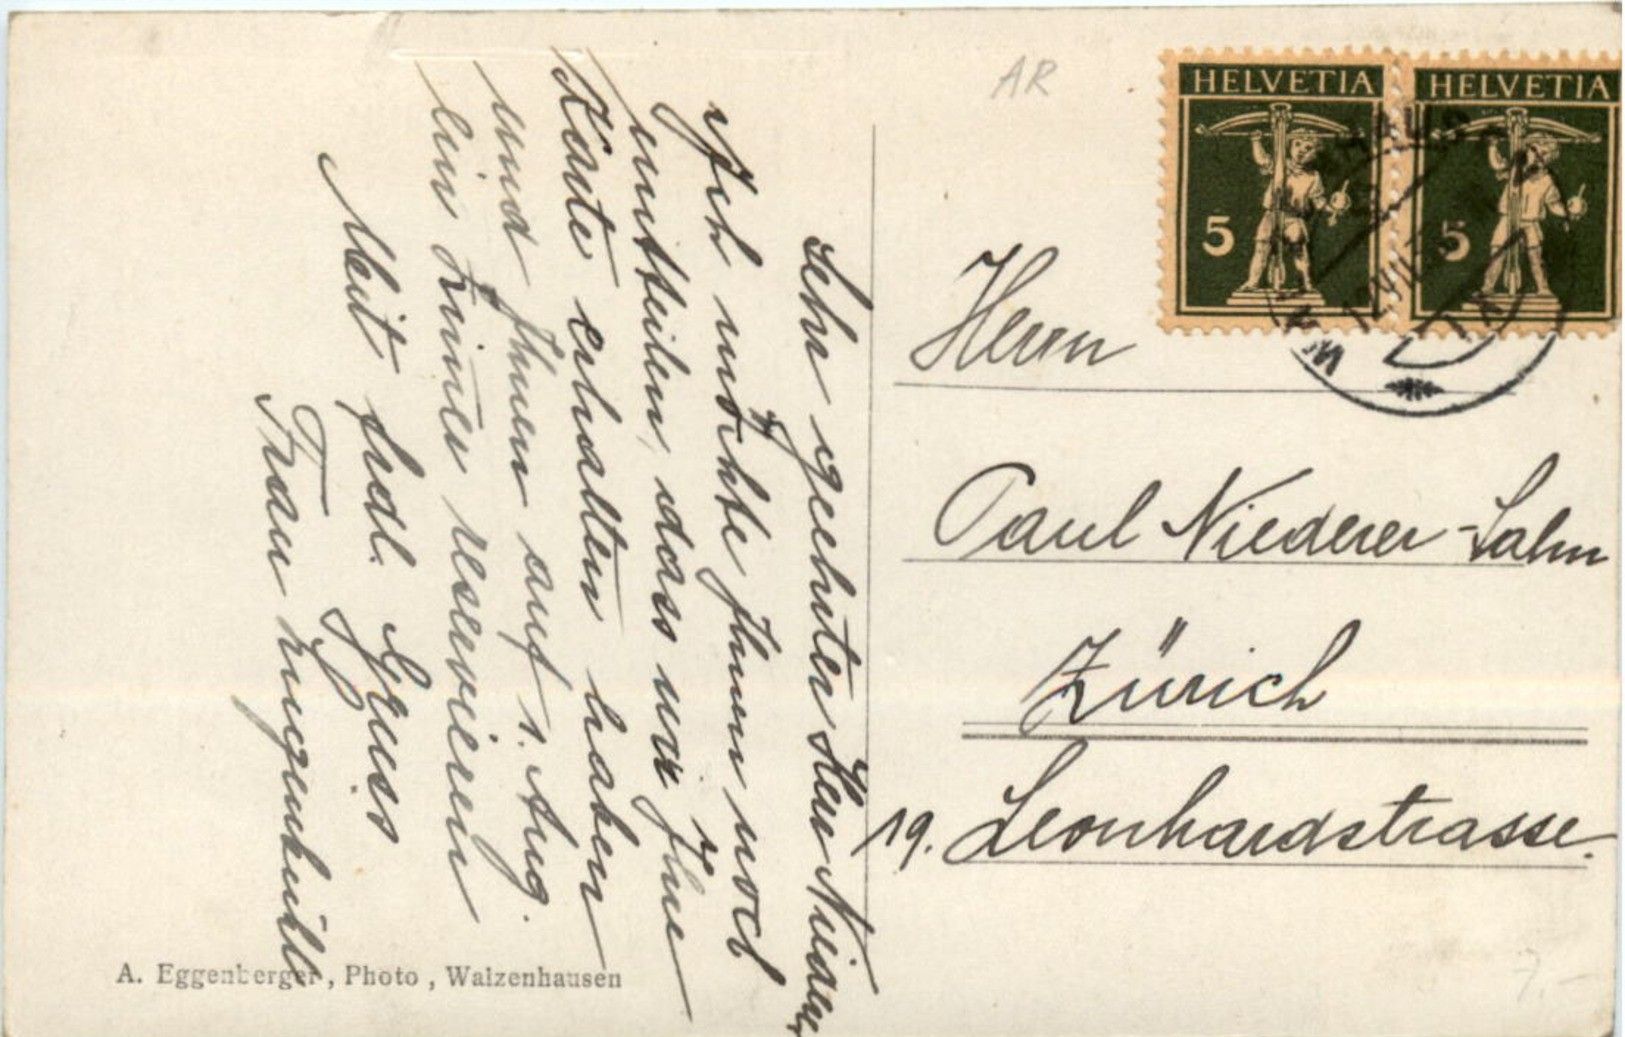 Sehr geehrter Herr Niederer
Ich möchte Ihnen noch
mitteilen, dass wir Ihre
Karte erhalten haben
und Ihnen auf 1. Aug.
ein Zimmer reservieren
Mit frdl. Gruss
Frau
A. Eggenberger, Photo, Walzenhausen
AR
HELVETIA
5
HELVETIA
5
Herrn
Paul Niederer-Sahm
Zürich
19. Leonhardstrasse.
7.-